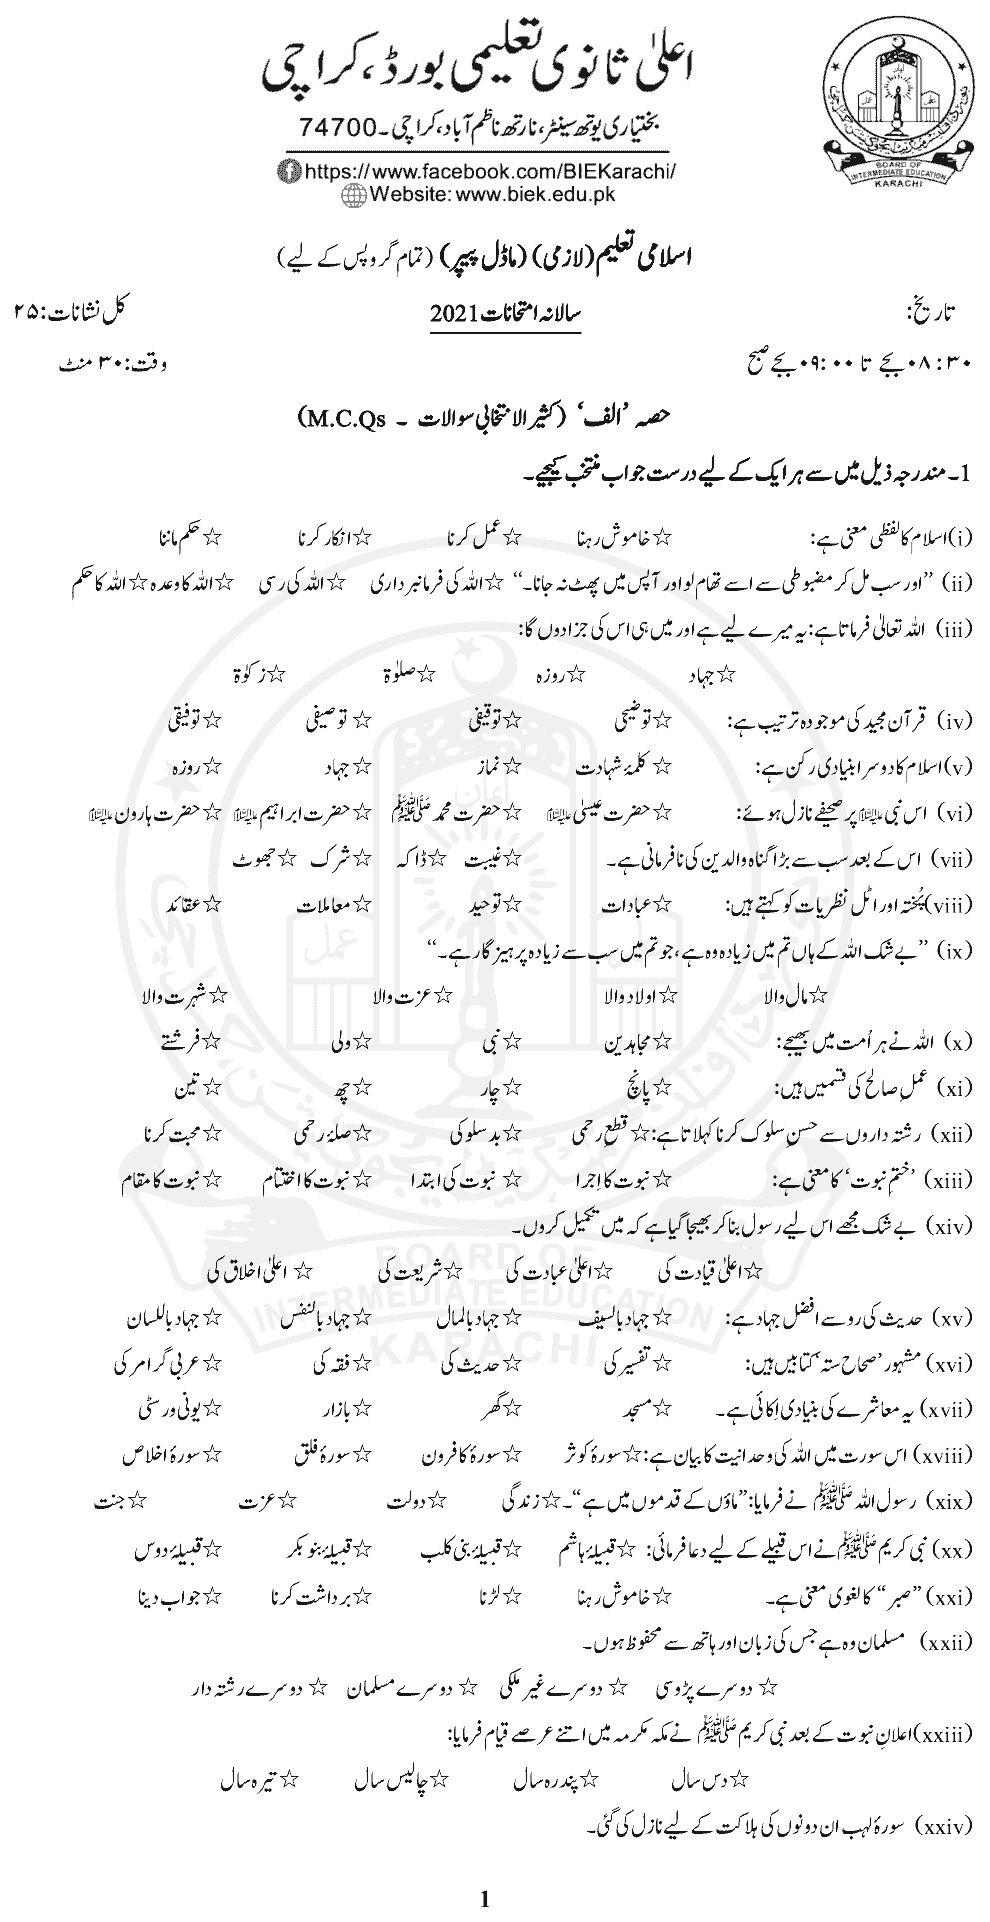 اعلیٰ ثانوی تعلیمی بورڈ، کراچی
بختیاری یوتھ سینٹر، نارتھ ناظم آباد، کراچی۔ 74700
https://www.facebook.com/BIEKarachi/
Website: www.biek.edu.pk
BOARD OF
INTERMEDIATE EDUCATION
KARACHI
اسلامی تعلیم (لازمی) (ماڈل پیپر) (تمام گروپس کے لیے)
تاریخ: سالانہ امتحانات 2021 کل نشانات: ۲۵
۰۸:۳۰ بجے تا ۰۹:۰۰ بجے صبح وقت: ۳۰ منٹ
حصہ ’الف‘ (کثیر الانتخابی سوالات ۔ M.C.Qs)
1۔ مندرجہ ذیل میں سے ہر ایک کے لیے درست جواب منتخب کیجیے۔
(i) اسلام کا لفظی معنی ہے: ☆ خاموش رہنا ☆ عمل کرنا ☆ انکار کرنا ☆ حکم ماننا
(ii) ”اور سب مل کر مضبوطی سے اسے تھام لو اور آپس میں پھٹ نہ جانا۔“ ☆ اللہ کی فرمانبرداری ☆ اللہ کی رسی ☆ اللہ کا وعدہ ☆ اللہ کا حکم
(iii) اللہ تعالیٰ فرماتا ہے: یہ میرے لیے ہے اور میں ہی اس کی جزا دوں گا:
☆ جہاد ☆ روزہ ☆ صلوٰۃ ☆ زکوٰۃ
(iv) قرآن مجید کی موجودہ ترتیب ہے: ☆ توضیحی ☆ توقیفی ☆ توصیفی ☆ توفیقی
(v) اسلام کا دوسرا بنیادی رکن ہے: ☆ کلمۂ شہادت ☆ نماز ☆ جہاد ☆ روزہ
(vi) اس نبی علیہ السلام پر صحیفے نازل ہوئے: ☆ حضرت عیسیٰ علیہ السلام ☆ حضرت محمد ﷺ ☆ حضرت ابراہیم علیہ السلام ☆ حضرت ہارون علیہ السلام
(vii) اس کے بعد سب سے بڑا گناہ والدین کی نافرمانی ہے۔ ☆ غیبت ☆ ڈاکہ ☆ شرک ☆ جھوٹ
(viii) پُختہ اور اٹل نظریات کو کہتے ہیں: ☆ عبادات ☆ توحید ☆ معاملات ☆ عقائد
(ix) ”بے شک اللہ کے ہاں تم میں زیادہ وہ ہے، جو تم میں سب سے زیادہ پرہیزگار ہے۔“
☆ مال والا ☆ اولاد والا ☆ عزت والا ☆ شہرت والا
(x) اللہ نے ہر اُمت میں بھیجے: ☆ مجاہدین ☆ نبی ☆ ولی ☆ فرشتے
(xi) عملِ صالح کی قسمیں ہیں: ☆ پانچ ☆ چار ☆ چھ ☆ تین
(xii) رشتہ داروں سے حسنِ سلوک کرنا کہلاتا ہے: ☆ قطع رحمی ☆ بدسلوکی ☆ صلۂ رحمی ☆ محبت کرنا
(xiii) ’ختمِ نبوت‘ کا معنی ہے: ☆ نبوت کا اِجرا ☆ نبوت کی ابتدا ☆ نبوت کا اختتام ☆ نبوت کا مقام
(xiv) بے شک مجھے اس لیے رسول بنا کر بھیجا گیا ہے کہ میں تکمیل کروں۔
☆ اعلیٰ قیادت کی ☆ اعلیٰ عبادت کی ☆ شریعت کی ☆ اعلیٰ اخلاق کی
(xv) حدیث کی رو سے افضل جہاد ہے: ☆ جہاد بالسیف ☆ جہاد بالمال ☆ جہاد بالنفس ☆ جہاد باللسان
(xvi) مشہور ’صحاح ستہ‘ کتابیں ہیں: ☆ تفسیر کی ☆ حدیث کی ☆ فقہ کی ☆ عربی گرامر کی
(xvii) یہ معاشرے کی بنیادی اِکائی ہے۔ ☆ مسجد ☆ گھر ☆ بازار ☆ یونی ورسٹی
(xviii) اس سورت میں اللہ کی وحدانیت کا بیان ہے: ☆ سورۂ کوثر ☆ سورۂ کافرون ☆ سورۂ فلق ☆ سورۂ اخلاص
(xix) رسول اللہ ﷺ نے فرمایا: ”ماؤں کے قدموں میں ہے“۔ ☆ زندگی ☆ دولت ☆ عزت ☆ جنت
(xx) نبی کریم ﷺ نے اس قبیلے کے لیے دعا فرمائی: ☆ قبیلۂ ہاشم ☆ قبیلۂ بنی کلب ☆ قبیلۂ بنو بکر ☆ قبیلۂ دوس
(xxi) ”صبر“ کا لغوی معنی ہے۔ ☆ خاموش رہنا ☆ لڑنا ☆ برداشت کرنا ☆ جواب دینا
(xxii) مسلمان وہ ہے جس کی زبان اور ہاتھ سے محفوظ ہوں۔
☆ دوسرے پڑوسی ☆ دوسرے غیر ملکی ☆ دوسرے مسلمان ☆ دوسرے رشتہ دار
(xxiii) اعلانِ نبوت کے بعد نبی کریم ﷺ نے مکہ مکرمہ میں اتنے عرصے قیام فرمایا:
☆ دس سال ☆ پندرہ سال ☆ چالیس سال ☆ تیرہ سال
(xxiv) سورۂ لہب ان دونوں کی ہلاکت کے لیے نازل کی گئی۔
1